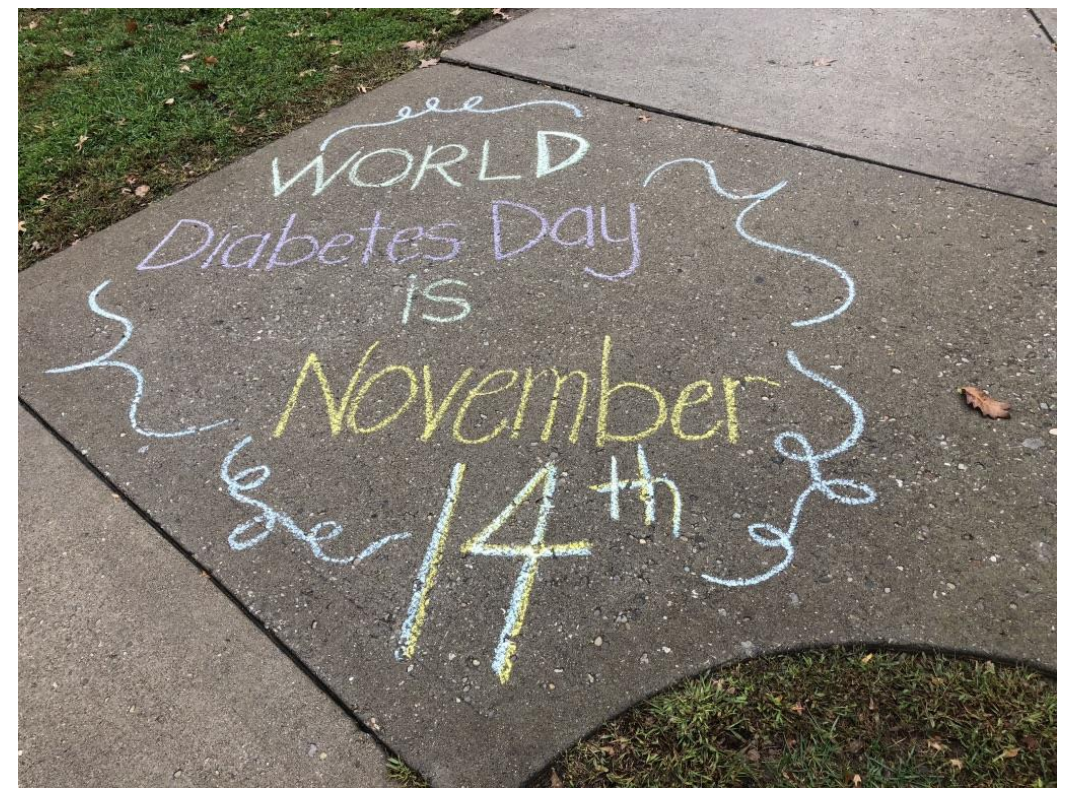 WORLD
Diabetes Day
is
November
14th